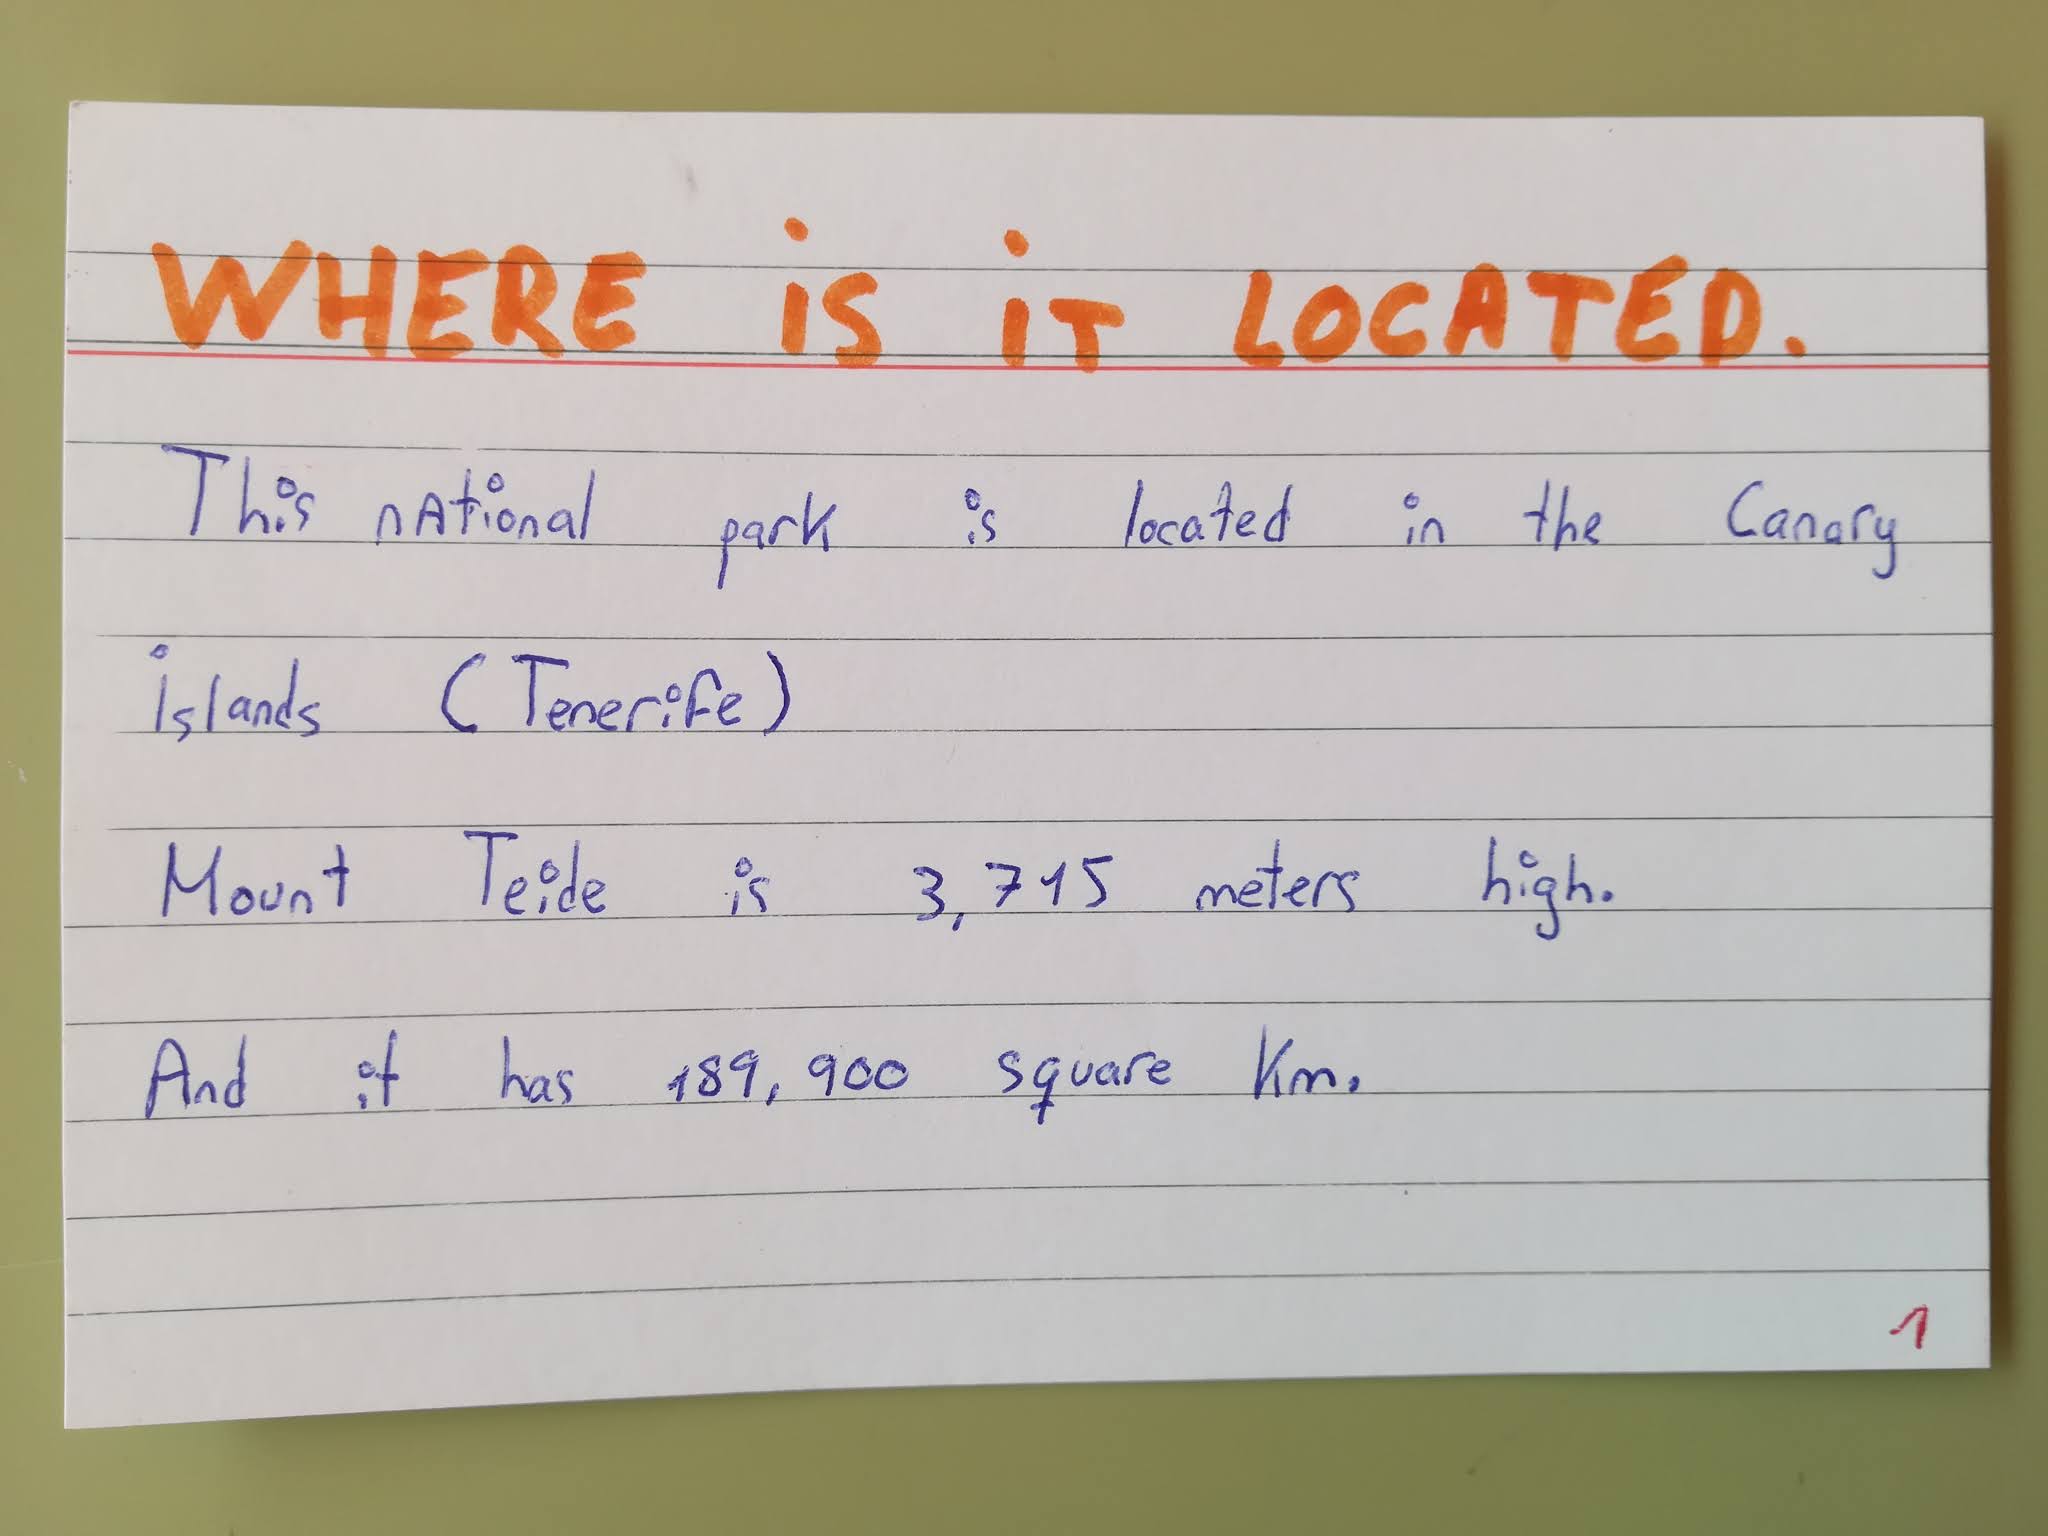 WHERE iS iT LOCATED.
This nAtional park is located in the Canary
islands (Tenerife)
Mount Teide is 3,715 meters high.
And it has 189,900 square Km.
1